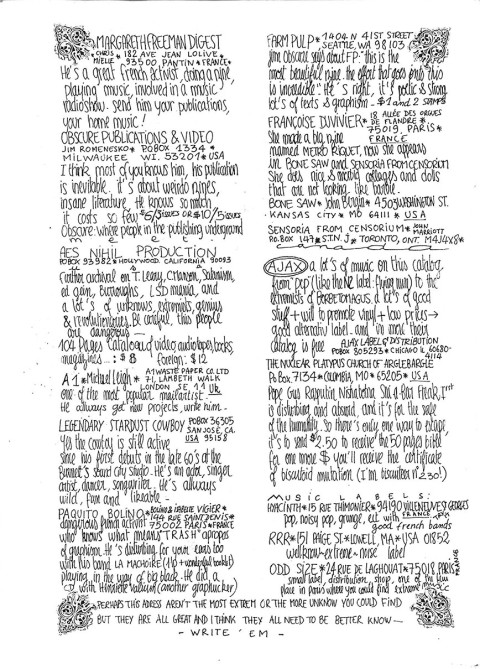 MARGARETH FREEMAN DIGEST
* CHRIS * 182 AVE JEAN LOLIVE *
MIELLE 93500 PANTIN * FRANCE *
He's a great french activist, doing a zine,
playing music, involved in a music
radioshow. send him your publications,
your home music!
OBSCURE PUBLICATIONS & VIDEO
JIM ROMENESKO * POBOX 1334 *
MILWAUKEE WI. 53201 * USA
I think most of you knows him, his publication
is inevitable. it's about weirdo zines,
insane literature. He knows so much
it costs so few $6/3 issues OR $10/5 issues
Obscure: where people in the publishing underground
meet
AES NIHIL PRODUCTION
POBOX 93982 * HOLLYWOOD, CALIFORNIA 90093
Further archival on T. Leary, C. Manson, Satanism,
ed gein, Burroughs, LSD mania, and
a lot's of unknows, extremists, genius
& revolutionnaries. Be careful, this people
are dangerous —
104 Pages Catalog of video, audio tapes, books,
magazines... : $8 Foreign: $12
A1 * Michael Leigh * A1 WASTE PAPER CO. LTD
71, LAMBETH WALK
LONDON SE 11 UK
one of the most popular mailartist.
He allways get new projects, write him.
LEGENDARY STARDUST COWBOY POBOX 36305
SAN JOSÉ, CA.
USA 95158
Yes the cowboy is still active
since his first debuts in the late 60's at the
Burnett's sound city studio. He's an actor, singer
artist, dancer, songwriter. He's allways
wild, fun and likeable -
PAQUITO BOLINO * BOLINO & ISABELLE VIGIER *
144 RUE SAINT DENIS *
75002 PARIS * FRANCE
dangerous french activist
who knows what means "TRASH" apropos
of graphism. He's disturbing for your ears too
with his band LA MACHOIRE (7 + wonderful booklet)
playing in the way of big black. He did a
with Henriette Valium (another graphucker)
FARM PULP * 1404 N 41ST. STREET
SEATTLE, WA 98103
Jim Obscure says about FP: "this is the
most beautiful zine. the effort that goes onto this
is incredible". He's right, it's poetic & strong
lot's of texts & graphism - $1 and 2 STAMPS
FRANÇOISE DUVIVIER * 18 ALLÉE DES ORGUES
DE FLANDRE *
75019, PARIS *
FRANCE
She made a big zine
named METRO RIQUET, now she appears
in BONE SAW and SENSORIA FROM CENSORIUM
She does nice & morbid collages and dolls
that are not looking like barbie.
BONE SAW * John Bergin * 4509 WASHINGTON ST.
KANSAS CITY * MO 64111 * USA
SENSORIA FROM CENSORIUM * JOHN MARRIOTT
P.O. BOX 147 * S.T.N. J * TORONTO, ONT. M4J4X8 *
AJAX a lot's of music on this catalog,
from pop (like the NZ label: flying nun) to the
extremists of BORBETOMAGUS. a lot's of good
stuff + will to promote vinyl + low prices →
good alternativ label. and 'in more' their
catalog is free AJAX LABEL & DISTRIBUTION
POBOX 805293 * CHICAGO IL 60680-4114
THE NUCLEAR PLATYPUS CHURCH OF ARGLEBARGLE
Po Box 7134 * COLUMBIA, MO * 65205 * USA
Pope Gus Rasputin Nishnabotna Sni-a-Bar Freak, 1rst
is disturbing and absurd, and it's for the sake
of the humanity, so there's only one way to escape
it's to send $2.50 to receive the 50 pages bible
for one more $ you'll receive the certificate
of biscuitoid mutation (i'm biscuiteer n° 230!)
MUSIC LABELS:
HYACINTH * 15 RUE THIMONIER * 94190 VILLENEUVE ST GEORGES
FRANCE
pop, noisy pop, grunge, ect with
good french bands
RRR * 151 PAIGE ST * LOWELL, MA * USA 01852
wellknow - extreme - noise label
ODD SIZE * 24 RUE DE LAGHOUAT * 75018 PARIS
FRANCE
small label, distribution, shop, one of the few
place in paris where you could find extreme music
PERHAPS THIS ADRESS AREN'T THE MOST EXTREM OR THE MORE UNKNOW YOU COULD FIND
BUT THEY ARE ALL GREAT AND I THINK THEY ALL NEED TO BE BETTER KNOW —
- WRITE 'EM -